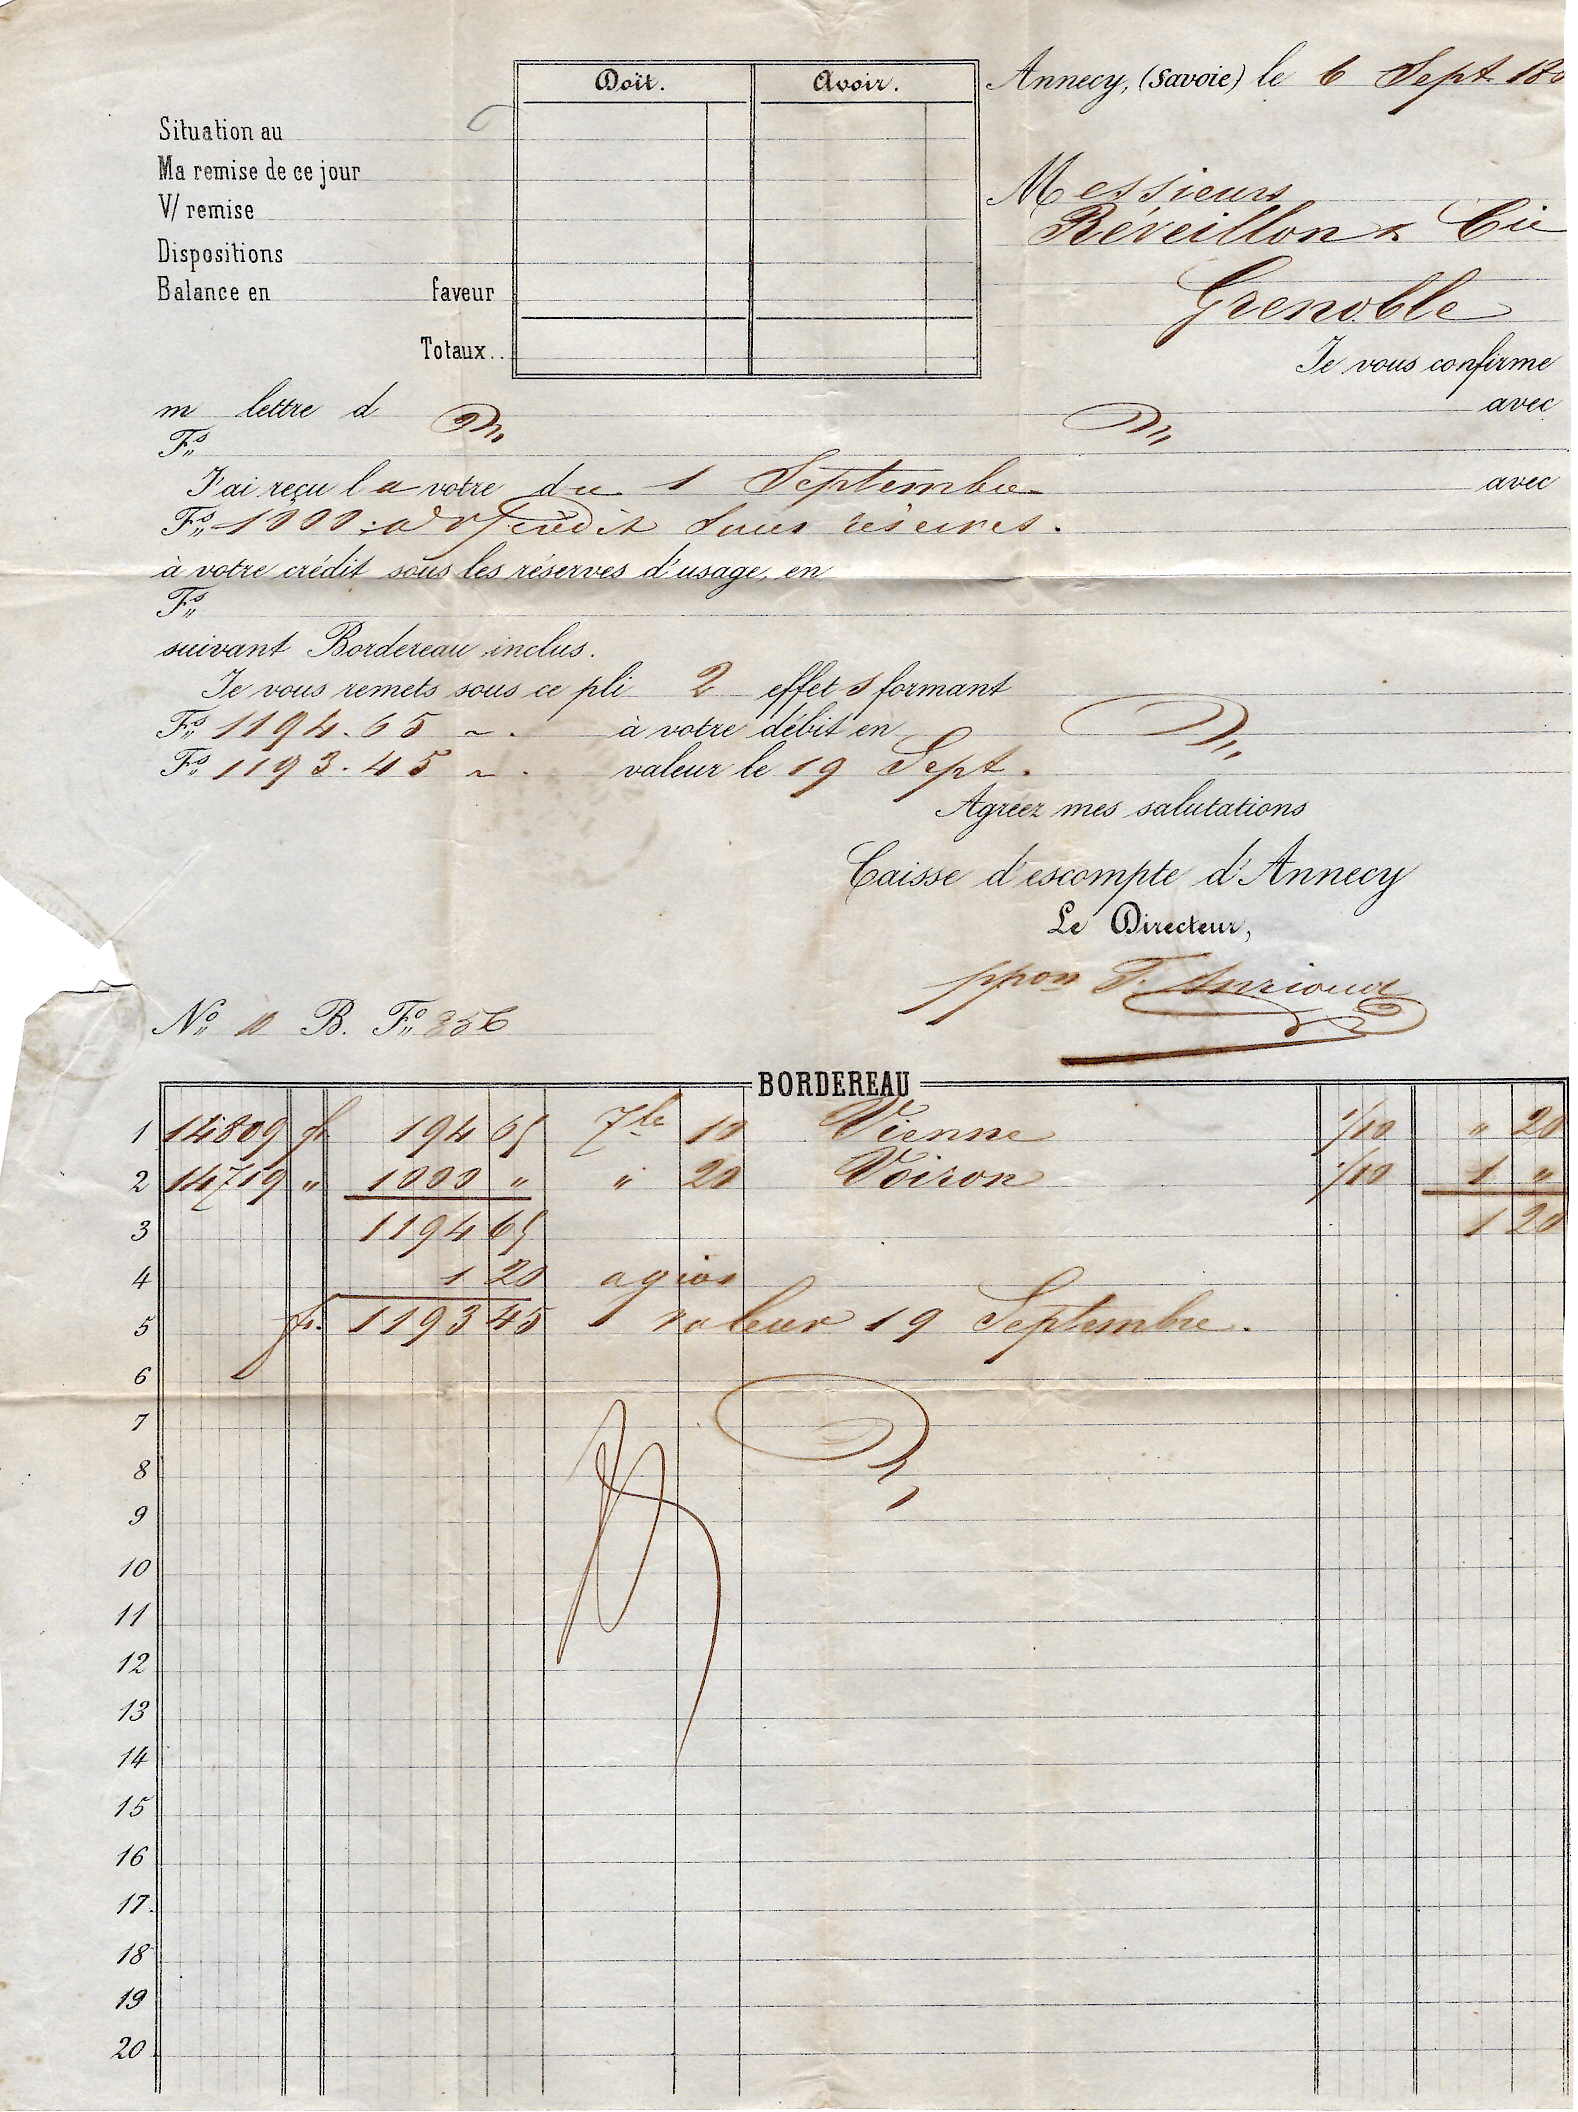 Doit. Avoir.
Annecy, (Savoie) le 6 Sept. 18
Situation au
Ma remise de ce jour
V/ remise
Dispositions
Balance en faveur
Totaux..
Messieurs
Réveillon & Cie
Grenoble
Je vous confirme
m lettre d avec
Fs
J'ai reçu la votre du 1 Septembre avec
Fs 1000 crédit sous réserves.
à votre crédit sous les réserves d'usage, en
Fs
suivant Bordereau inclus.
Je vous remets sous ce pli 2 effets formant
Fs 1194.65 ~. à votre débit en
Fs 1193.45 ~. valeur le 19 Sept.
Agréez mes salutations
Caisse d'escompte d'Annecy
Le Directeur,
ppon
No 10 B. Fo 356
BORDEREAU
1 14809 fr 194 65 7bre 10 Vienne 1/10 " 20
2 14719 " 1000 " " 20 Voiron 1/10 1 "
3 1194 65 1 20
4 1 20 agios
5 fr. 1193 45 valeur 19 Septembre.
6
7
8
9
10
11
12
13
14
15
16
17.
18
19
20.